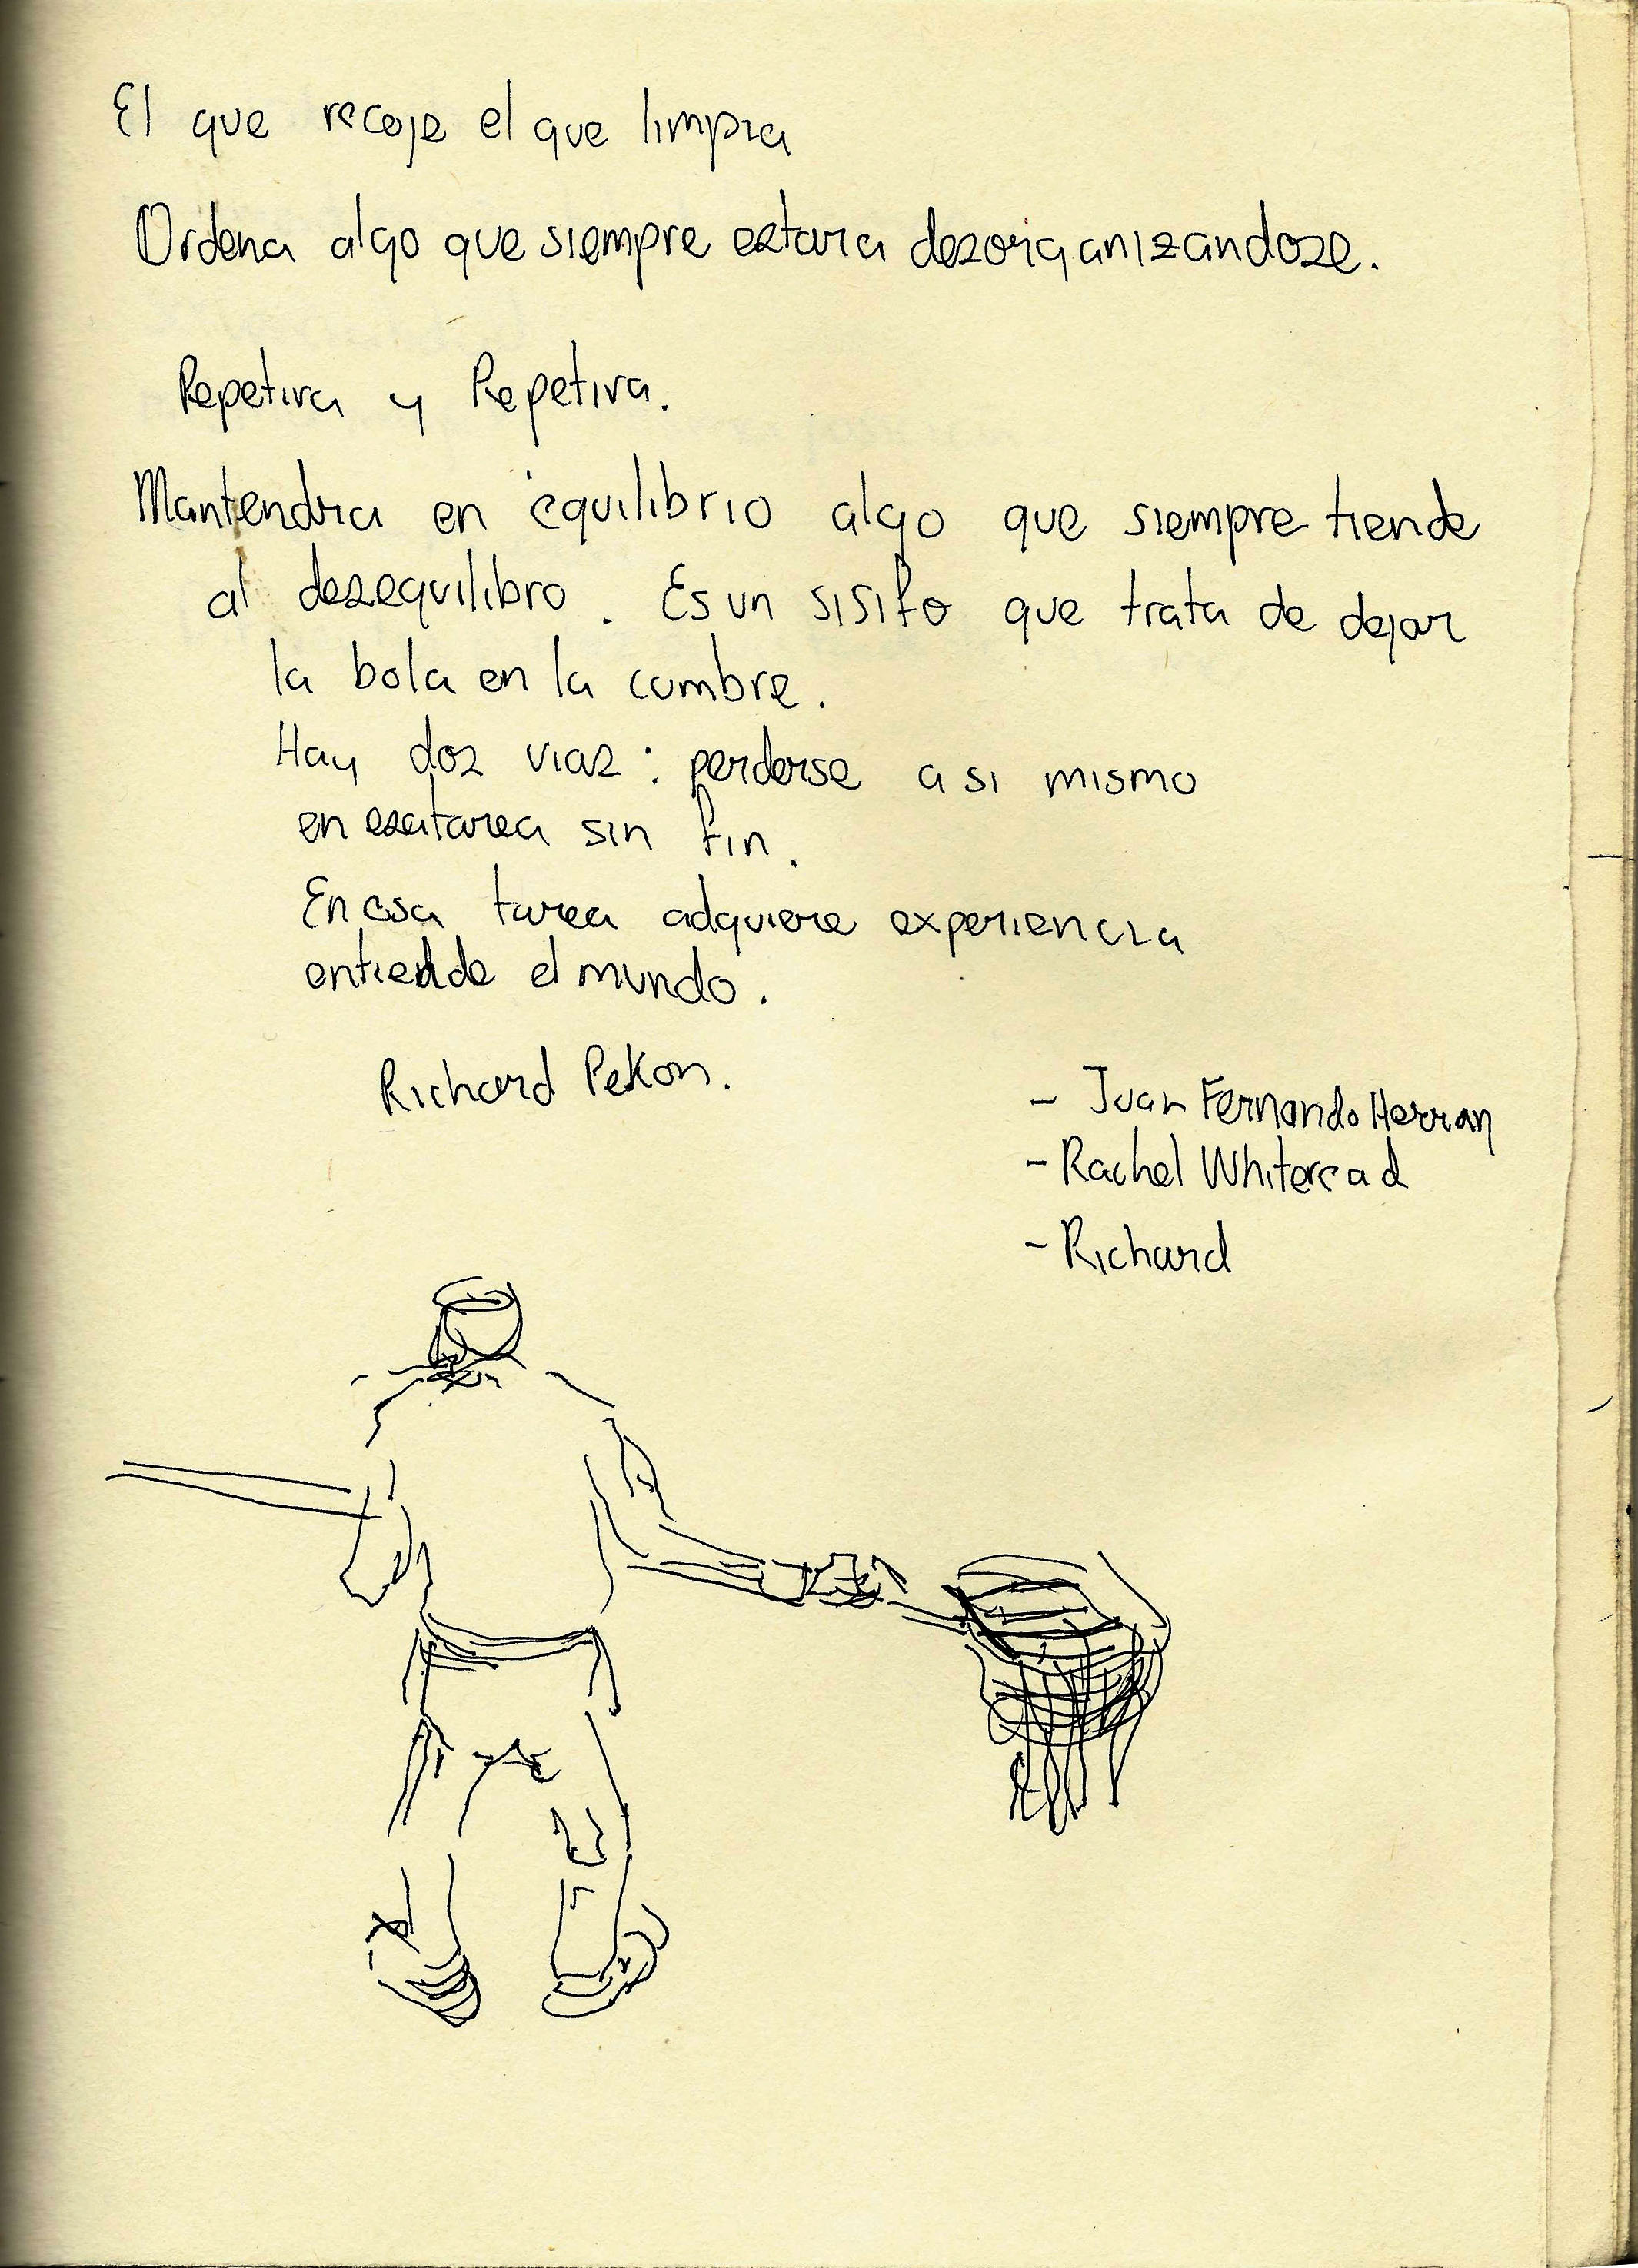 El que recoje el que limpia
Ordena algo que siempre estara desorganizandose.
Repetira y Repetira.
Mantendra en equilibrio algo que siempre tiende
al desequilibro. Es un sisifo que trata de dejar
la bola en la cumbre.
Hay dos vias: perderse a si mismo
en esa tarea sin fin.
En esa tarea adquiere experiencia
entiende el mundo.
Richard Pekon.
- Juan Fernando Herran
- Rachel Whiteread
- Richard